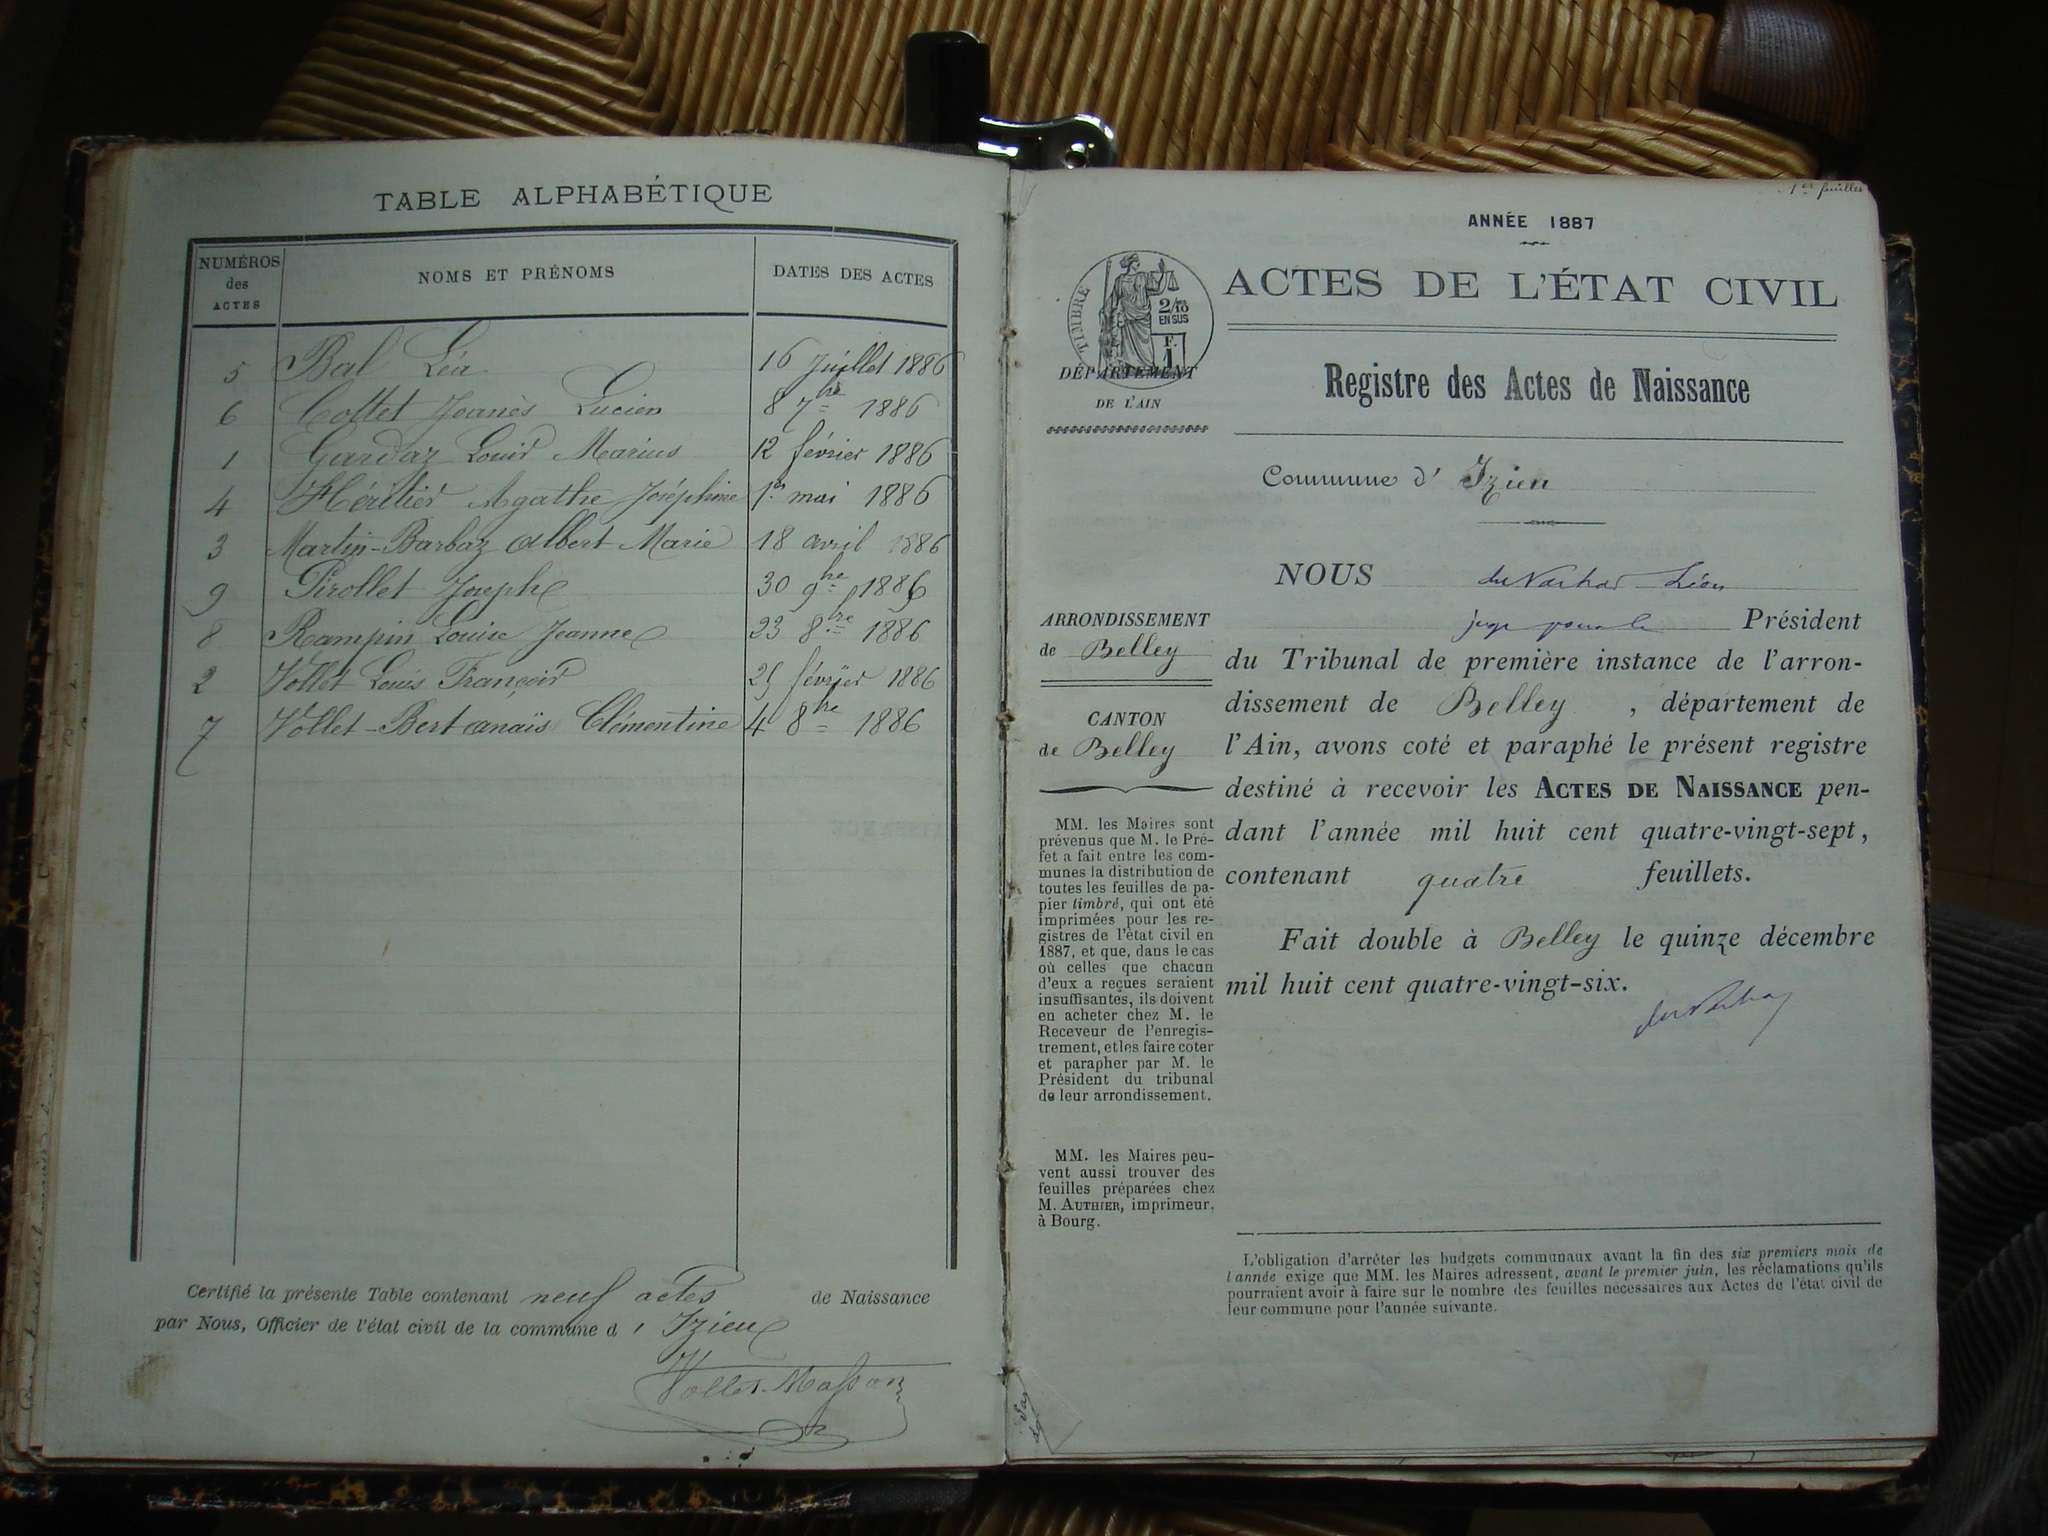 TABLE ALPHABÉTIQUE
NUMÉROS des ACTES
NOMS ET PRÉNOMS
DATES DES ACTES
5 Bal Léa 16 Juillet 1886
6 Cottet Joanès Lucien 8 7bre 1886
1 Gardaz Louis Marius 12 février 1886
4 Héritier Agathe Joséphine 1er mai 1886
3 Martin-Barbaz Albert Marie 18 avril 1886
9 Pirollet Joseph 30 9bre 1886
8 Rampin Louise Jeanne 23 8bre 1886
2 Vollet Louis François 25 février 1886
7 Vollet-Bert anaïs Clémentine 4 8bre 1886
Certifié la présente Table contenant neuf actes de Naissance
par Nous, Officier de l'état civil de la commune d' Izieu
Vollet-Masson
1er feuillet
ANNÉE 1887
TIMBRE
2/10
EN SUS
F.
1
ACTES DE L'ÉTAT CIVIL
DÉPARTEMENT
DE L'AIN
Registre des Actes de Naissance
Commune d' Izieu
NOUS Léon
Président
ARRONDISSEMENT
de Belley
CANTON
de Belley
du Tribunal de première instance de l'arron-
dissement de Belley, département de
l'Ain, avons coté et paraphé le présent registre
destiné à recevoir les ACTES DE NAISSANCE pen-
dant l'année mil huit cent quatre-vingt-sept,
contenant quatre feuillets.
Fait double à Belley le quinze décembre
mil huit cent quatre-vingt-six.
MM. les Maires sont
prévenus que M. le Pré-
fet a fait entre les com-
munes la distribution de
toutes les feuilles de pa-
pier timbré, qui ont été
imprimées pour les re-
gistres de l'état civil en
1887, et que, dans le cas
où celles que chacun
d'eux a reçues seraient
insuffisantes, ils doivent
en acheter chez M. le
Receveur de l'enregis-
trement, et les faire coter
et parapher par M. le
Président du tribunal
de leur arrondissement.
MM. les Maires peu-
vent aussi trouver des
feuilles préparées chez
M. AUTHIER, imprimeur,
à Bourg.
L'obligation d'arrêter les budgets communaux avant la fin des six premiers mois de
l'année exige que MM. les Maires adressent, avant le premier juin, les réclamations qu'ils
pourraient avoir à faire sur le nombre des feuilles nécessaires aux Actes de l'état civil de
leur commune pour l'année suivante.